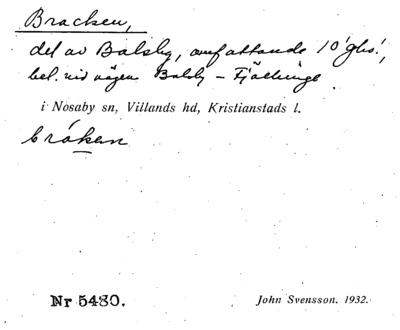 Bracken,
del av Balsby, omfattande 10 ghs.,
bel. vid vägen Balsby – Fjälkinge
i Nosaby sn, Villands hd, Kristianstads l.
bråkan
Nr 5480. John Svensson. 1932.